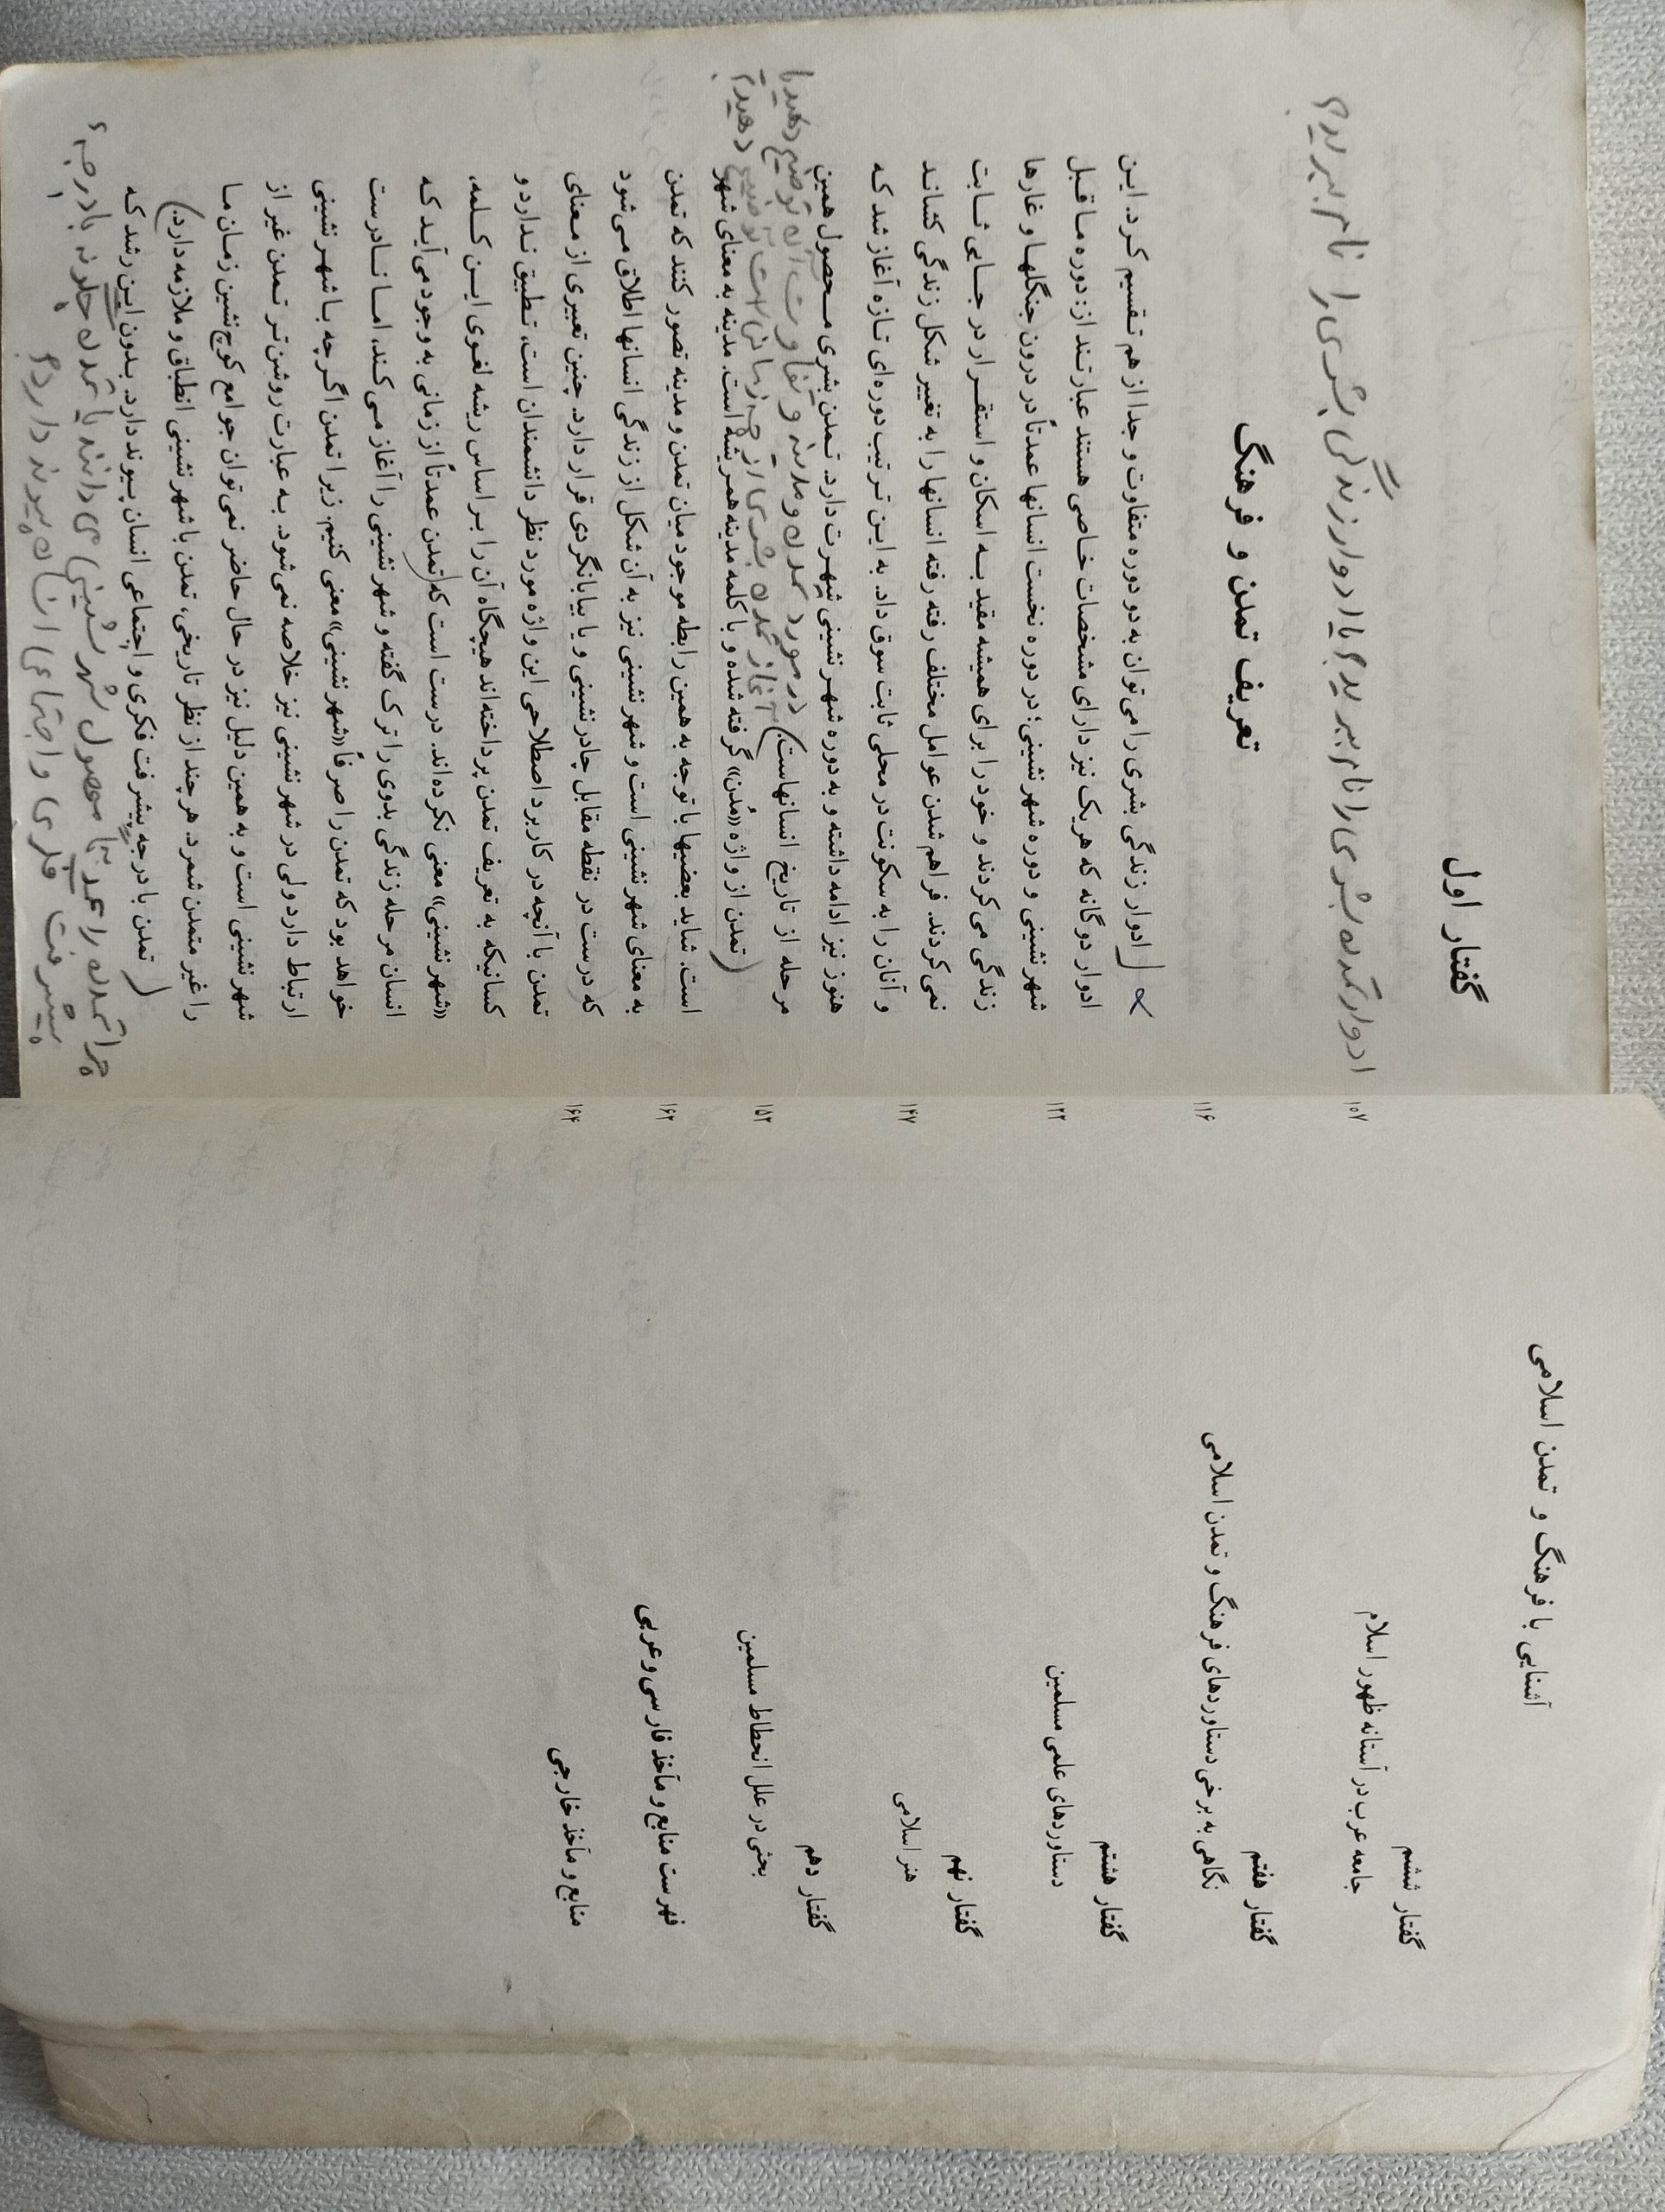 آشنایی با فرهنگ و تمدن اسلامی
گفتار ششم
جامعه عرب در آستانه ظهور اسلام ۱۰۷
گفتار هفتم
نگاهی به برخی دستاوردهای فرهنگ و تمدن اسلامی ۱۱۶
گفتار هشتم
دستاوردهای علمی مسلمین ۱۲۲
گفتار نهم
هنر اسلامی ۱۴۷
گفتار دهم
بحثی در علل انحطاط مسلمین ۱۵۲
فهرست منابع و مآخذ فارسی و عربی ۱۶۲
منابع و مآخذ خارجی ۱۶۴
گفتار اول
ادوار تمدن بشری را نام ببرید؟ یا ادوار زندگی بشری را نام ببرید؟
تعریف تمدن و فرهنگ
ادوار زندگی بشری را می‌توان به دو دوره متفاوت و جدا از هم تقسیم کرد. این
ادوار دوگانه که هر یک نیز دارای مشخصات خاصی هستند عبارتند از: دوره ماقبل
شهرنشینی و دوره شهرنشینی؛ در دوره نخست انسانها عمدتاً در درون جنگلها و غارها
زندگی می‌کردند و خود را برای همیشه مقید به اسکان و استقرار در جایی ثابت
نمی‌کردند. فراهم شدن عوامل مختلف رفته رفته انسانها را به تغییر شکل زندگی کشاند
و آنان را به سکونت در محلی ثابت سوق داد. به این ترتیب دوره‌ای تازه آغاز شد که
هنوز نیز ادامه داشته و به دوره شهرنشینی شهرت دارد. تمدن بشری محصول همین
مرحله از تاریخ انسانهاست.) در مورد تمدن و مدینه و تفاوت آن توضیح دهید؟
آغاز تمدن بشری از چه زمانی است توضیح دهید؟
(تمدن از واژه «مُدن» گرفته شده و با کلمه مدینه همریشه است. مدینه به معنای شهر
است. شاید بعضیها با توجه به همین رابطه موجود میان تمدن و مدینه تصور کنند که تمدن
به معنای شهرنشینی است و شهرنشینی نیز به آن شکل از زندگی انسانها اطلاق می‌شود
که درست در نقطه مقابل چادرنشینی و یا بیابانگردی قرار دارد. چنین تعبیری از معنای
تمدن با آنچه در کاربرد اصطلاحی این واژه مورد نظر دانشمندان است، تطبیق ندارد و
کسانیکه به تعریف تمدن پرداخته‌اند هیچگاه آن را بر اساس ریشه لغوی این کلمه،
«شهرنشینی» معنی نکرده‌اند. درست است که (تمدن عمدتاً از زمانی به وجود می‌آید که
انسان مرحله زندگی بدوی را ترک گفته و شهرنشینی را آغاز می‌کند، اما نادرست
خواهد بود که تمدن را صرفاً «شهرنشینی» معنی کنیم. زیرا تمدن اگرچه با شهرنشینی
ارتباط دارد ولی در شهرنشینی نیز خلاصه نمی‌شود. به عبارت روشن‌تر تمدن غیر از
شهرنشینی است و به همین دلیل نیز در حال حاضر نمی‌توان جوامع کوچ‌نشین زمان ما
را غیر متمدن شمرد. هر چند از نظر تاریخی، تمدن با شهرنشینی انطباق و ملازمه دارد.)
(تمدن با درجه پیشرفت فکری و اجتماعی انسان پیوند دارد. بدون این رشد که
چرا تمدن را عمدتا محصول شهرنشینی می دانند یا تمدن چگونه با درجه؟
پیشرفت فکری و اجتماعی انسان پیوند دارد؟